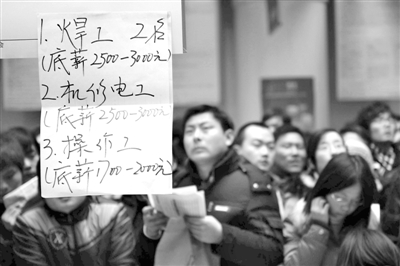 1.焊工 2名
(底薪2500-3000元)
2.机修电工
(底薪2500-3000元)
3.操作工
(底薪1700-2000元)